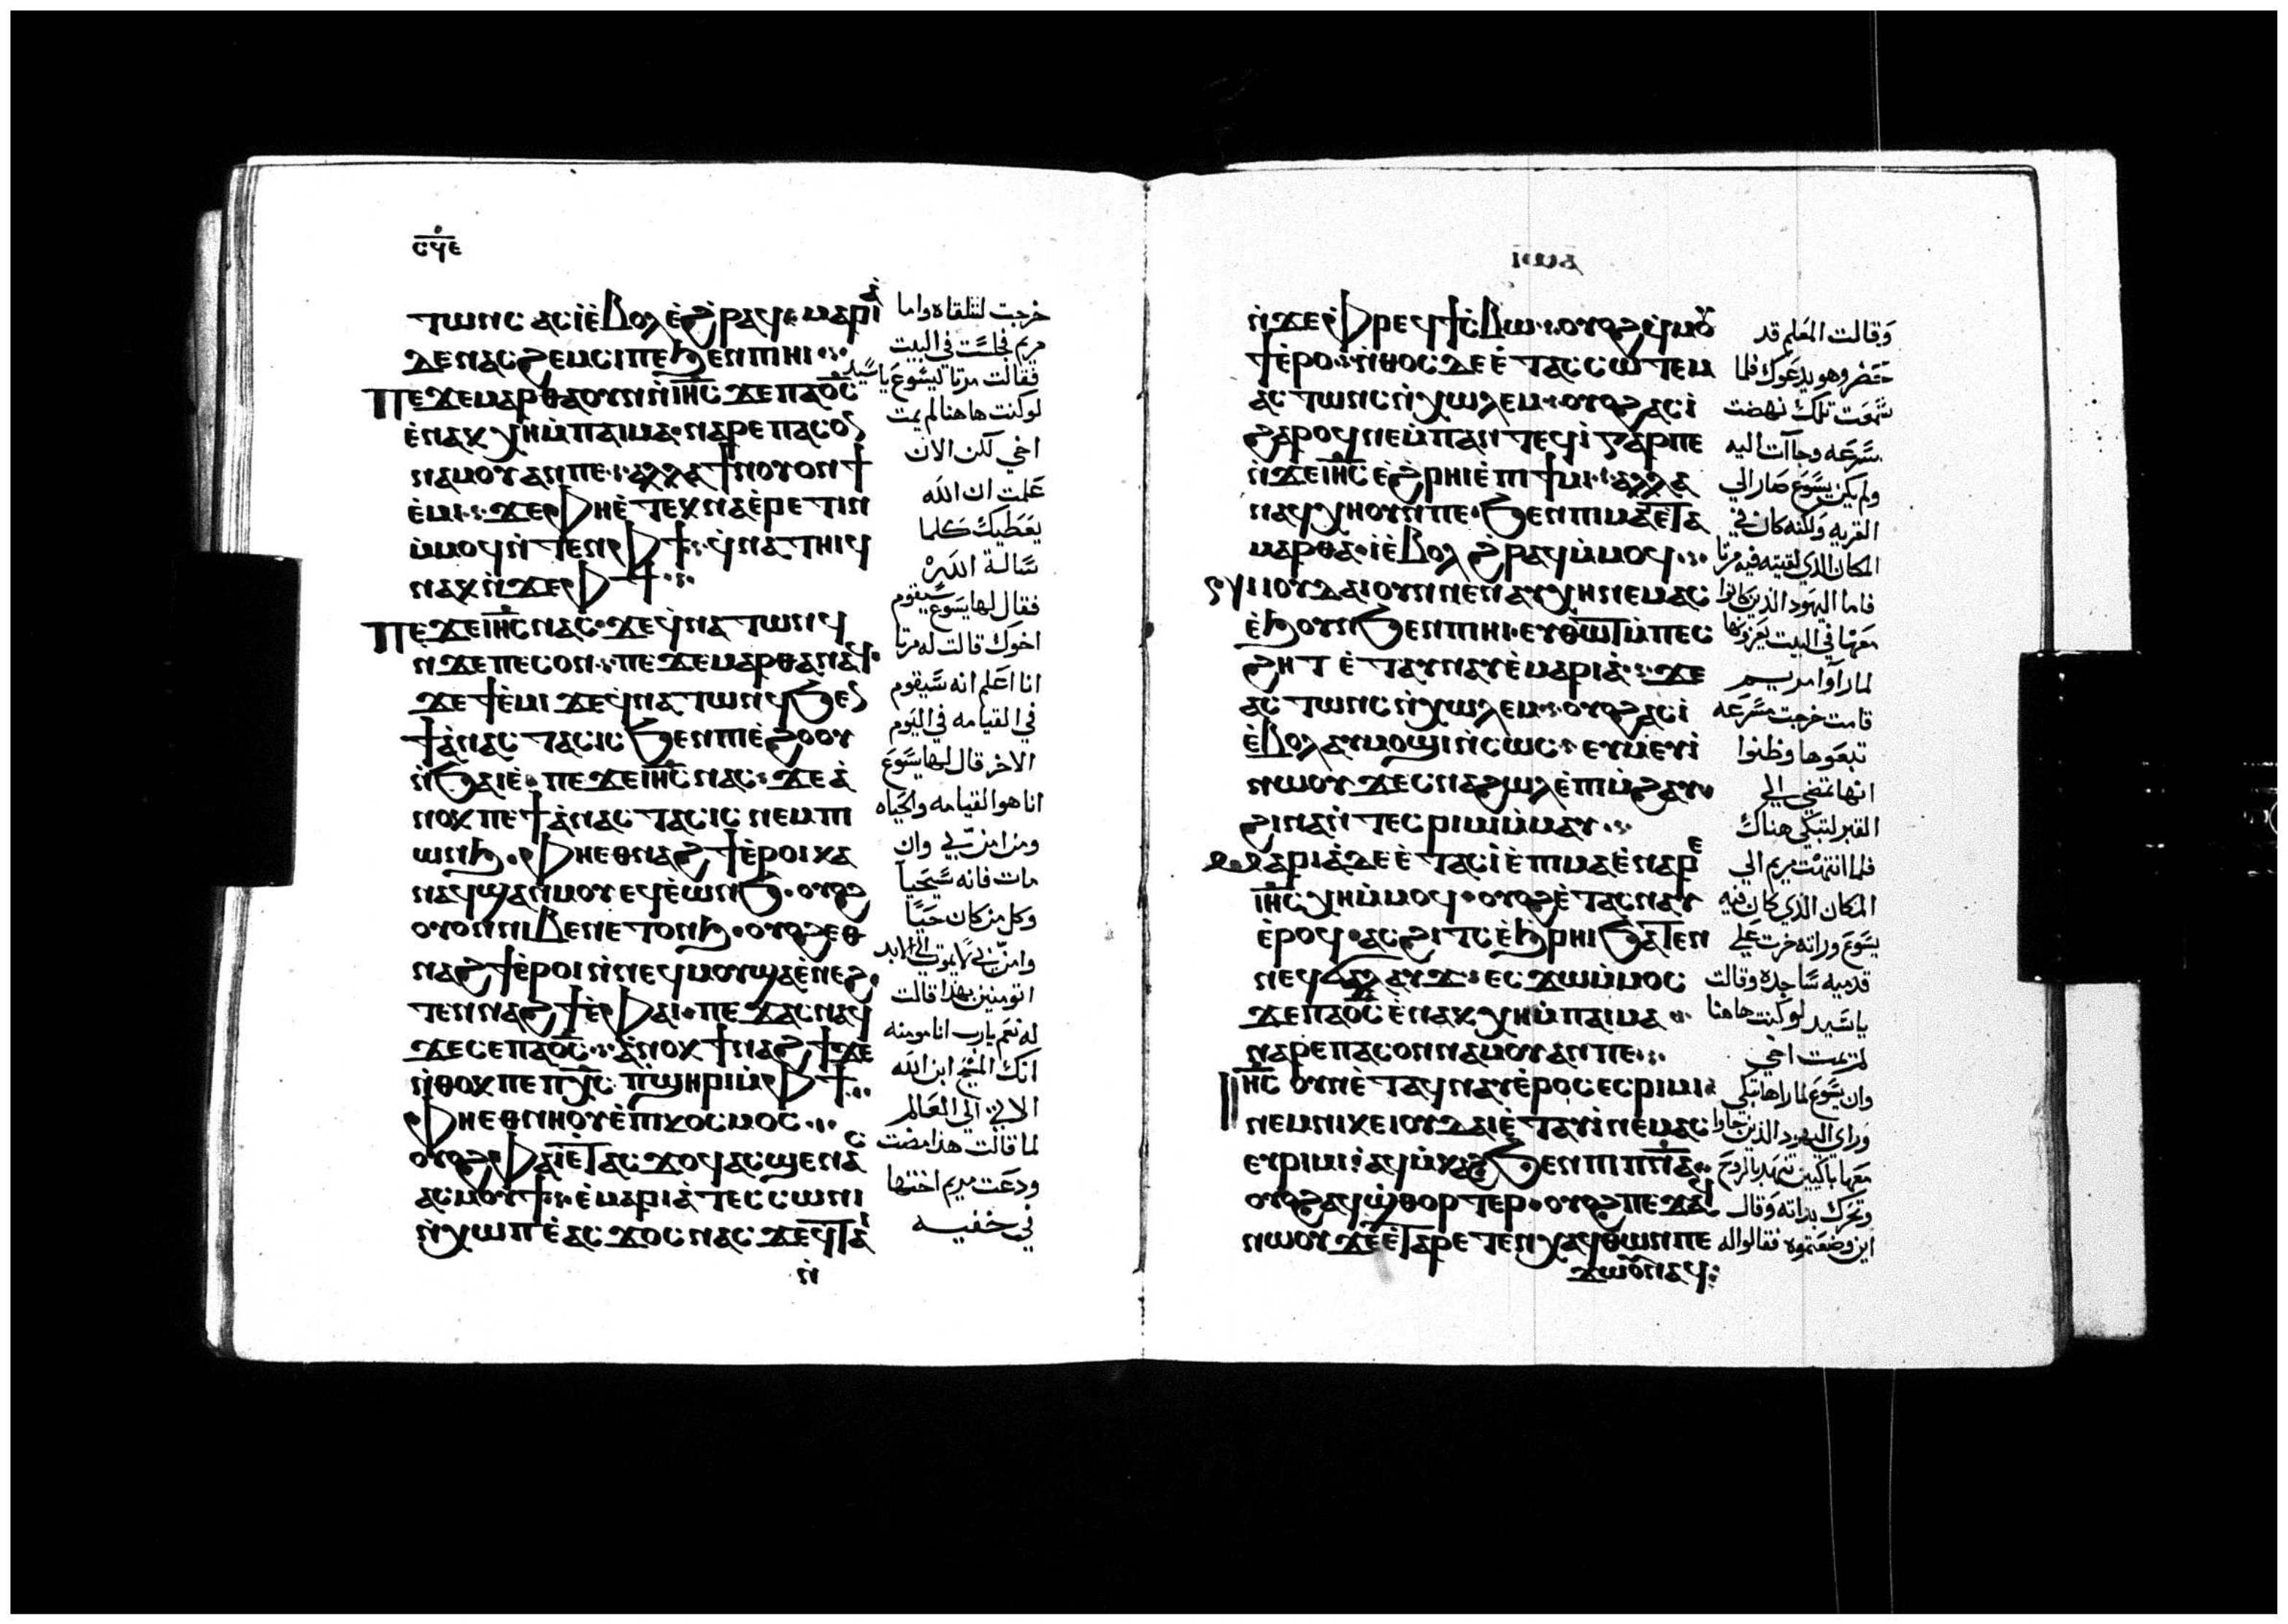 ⲥϥⲉ
ⲧⲱⲛⲥ ⲁⲥⲓ̀ⲉ̀ⲃⲟⲗ ⲉ̀ϩⲣⲁϥ ⲙⲁⲣⲓⲁ̀
ⲇⲉ ⲛⲁⲥϩⲉⲙⲥⲓ ⲡⲉ ϧⲉⲛⲡⲓⲏⲓ
ⲡⲉϫⲉ ⲙⲁⲣⲑⲁ ⲟⲩⲛ ⲛ̀ⲓⲏⲥ ϫⲉ ⲡⲁⲟⲥ
ⲉ̀ⲛⲁⲕⲭⲏ ⲙ̀ⲡⲁⲓⲙⲁ ⲛⲁⲣⲉ ⲡⲁⲥⲟⲛ
ⲛⲁⲙⲟⲩ ⲁⲛ ⲡⲉ ⲁⲗⲗⲁ ϯⲛⲟⲩ ⲟⲛ ϯ
ⲉ̀ⲙⲓ ϫⲉ ⲫⲏ ⲉ̀ⲧⲉⲕⲛⲁⲉ̀ⲣⲉⲧⲓⲛ
ⲙ̀ⲙⲟϥ ⲛ̀ⲧⲉⲛ ⲫϯ ϥ̀ⲛⲁⲧⲏⲓϥ
ⲛⲁⲕ ⲛ̀ϫⲉ ⲫϯ
ⲡⲉϫⲉ ⲓⲏⲥ ⲛⲁⲥ ϫⲉ ϥ̀ⲛⲁⲧⲱⲛϥ
ⲛ̀ϫⲉ ⲡⲉⲥⲟⲛ ⲡⲉϫⲉ ⲙⲁⲣⲑⲁ ⲛⲁϥ
ϫⲉ ϯⲉ̀ⲙⲓ ϫⲉ ϥ̀ⲛⲁⲧⲱⲛϥ ϧⲉⲛ
ϯⲁ̀ⲛⲁⲥⲧⲁⲥⲓⲥ ϧⲉⲛ ⲡⲓⲉ̀ϩⲟⲟⲩ
ⲛ̀ϧⲁⲓⲉ̀ ⲡⲉϫⲉ ⲓⲏⲥ ⲛⲁⲥ ϫⲉ ⲁ̀
ⲛⲟⲕ ⲡⲉ ϯⲁ̀ⲛⲁⲥⲧⲁⲥⲓⲥ ⲛⲉⲙ ⲡⲓ
ⲱⲛϧ ⲫⲏ ⲉⲑⲛⲁϩϯ ⲉ̀ⲣⲟⲓ ⲕⲁ
ⲛ ⲁϥϣⲁⲛⲙⲟⲩ ⲉϥⲉ̀ⲱⲛϧ ⲟⲩⲟϩ
ⲟⲩⲟⲛ ⲛⲓⲃⲉⲛ ⲉⲧⲟⲛϧ ⲟⲩⲟϩ ⲉⲑ
ⲛⲁϩϯ ⲉ̀ⲣⲟⲓ ⲛ̀ⲛⲉϥⲙⲟⲩ ϣⲁ ⲉ̀ⲛⲉϩ
ⲧⲉⲛⲛⲁϩϯ ⲉ̀ⲫⲁⲓ ⲡⲉϫⲁⲥ ⲛⲁϥ
ϫⲉ ⲥⲉ ⲡⲁⲟⲥ ⲁ̀ⲛⲟⲕ ϯⲛⲁϩϯ ϫⲉ
ⲛ̀ⲑⲟⲕ ⲡⲉ ⲡⲭⲥ ⲡ̀ϣⲏⲣⲓ ⲙ̀ⲫϯ
ⲫⲏ ⲉⲑⲛⲏⲟⲩ ⲉ̀ⲡⲓⲕⲟⲥⲙⲟⲥ
ⲟⲩⲟϩ ⲫⲁⲓ ⲉ̀ⲧⲁⲥϫⲟϥ ⲁⲥϣⲉⲛⲁⲥ
ⲁⲥⲙⲟⲩϯ ⲉ̀ⲙⲁⲣⲓⲁ̀ ⲧⲉⲥⲥⲱⲛⲓ
ⲛ̀ⲭⲱⲡ ⲉ̀ⲁⲥϫⲟⲥ ⲛⲁⲥ ϫⲉ ϥ̀ⲧⲁⲓ̀
ⲛ̀
خرجت لتلقاه واما
مريم فجلست في البيت
فقالت مرتا ليسوع ياسيد
لو كنت هاهنا لم يمت
اخي لكن الان
علمت ان الله
يعطيك كلما
سالة الله
فقال لها يسوع سيقوم
اخوك قالت له مرتا
انا اعلم انه سيقوم
في القيامه في اليوم
الاخر قال لها يسوع
انا هو القيامه والحياه
ومن امن بي وان
مات فانه سيحيا
وكل من كان حيا
وامن بي لا يموت الى الابد
اتومنين بهذا قالت
له نعم يارب انا مومنه
انك المسيح ابن الله
الاتي الي العالم
لما قالت هذا مضت
ودعت مريم اختها
في خفيه
ⲛ̀ϫⲉ ⲫⲣⲉϥϯⲥ̀ⲃⲱ ⲟⲩⲟϩ ϥ̀ⲙⲟⲩ
ϯ ⲉ̀ⲣⲟ ⲛ̀ⲑⲟⲥ ⲇⲉ ⲉ̀ⲧⲁⲥⲥⲱⲧⲉⲙ
ⲁⲥⲧⲱⲛⲥ ⲛ̀ⲭⲱⲗⲉⲙ ⲟⲩⲟϩ ⲁⲥⲓ̀
ϩⲁⲣⲟϥ ⲛⲉⲙ̀ⲡⲁⲛⲧⲉϥⲓ̀ ⲅⲁⲣ ⲡⲉ
ⲛ̀ϫⲉ ⲓⲏⲥ ⲉ̀ϩⲣⲏⲓ ⲉ̀ⲡⲓϯⲙⲓ ⲁⲗⲗⲁ
ⲛⲁϥⲭⲏ ⲟⲩⲛ ⲡⲉ ϧⲉⲛ ⲡⲓⲙⲁ ⲉ̀ⲧⲁ
ⲙⲁⲣⲑⲁ ⲓ̀ ⲉ̀ⲃⲟⲗ ⲉ̀ϩⲣⲁϥ ⲙ̀ⲙⲟϥ
ⲛⲓⲓⲟⲩⲇⲁⲓ ⲟⲩⲛ ⲛⲉ ⲛⲁⲩⲭⲏ ⲛⲉⲙⲁⲥ
ⲉ̀ϧⲟⲩⲛ ϧⲉⲛ ⲡⲓⲏⲓ ⲉⲩⲑⲱⲧ ⲙ̀ⲡⲉⲥ
ϩⲏⲧ ⲉ̀ⲧⲁⲩⲛⲁⲩ ⲉ̀ⲙⲁⲣⲓⲁ̀ ϫⲉ
ⲁⲥⲧⲱⲛⲥ ⲛ̀ⲭⲱⲗⲉⲙ ⲟⲩⲟϩ ⲁⲥⲓ̀
ⲉ̀ⲃⲟⲗ ⲁⲩⲙⲟϣⲓ ⲛ̀ⲥⲱⲥ ⲉⲩⲙ̀ⲉⲩⲓ̀
ⲛⲱⲟⲩ ϫⲉ ⲥⲛⲁϩⲱⲗ ⲉ̀ⲡⲓⲙ̀ϩⲁⲩ
ϩⲓⲛⲁ ⲛ̀ⲧⲉⲥⲣⲓⲙⲓ ⲙ̀ⲙⲁⲩ
ⲙⲁⲣⲓⲁ̀ ⲇⲉ ⲉ̀ⲧⲁⲥⲓ̀ ⲉ̀ⲡⲓⲙⲁ ⲉ̀ⲛⲁⲣⲉ
ⲓⲏⲥ ⲭⲏ ⲙ̀ⲙⲟϥ ⲟⲩⲟϩ ⲉ̀ⲧⲁⲥⲛⲁⲩ
ⲉ̀ⲣⲟϥ ⲁⲥϩⲓⲧⲥ ⲉ̀ϧⲣⲏⲓ ϧⲁⲧⲉⲛ
ⲛⲉϥϭⲁⲗⲁⲩϫ ⲉⲥϫⲱ ⲙ̀ⲙⲟⲥ
ϫⲉ ⲡⲁⲟⲥ ⲉ̀ⲛⲁⲕⲭⲏ ⲙ̀ⲡⲁⲓⲙⲁ
ⲛⲁⲣⲉ ⲡⲁⲥⲟⲛ ⲛⲁⲙⲟⲩ ⲁⲛ ⲡⲉ
ⲓⲏⲥ ⲟⲩⲛ ⲉ̀ⲧⲁϥⲛⲁⲩ ⲉ̀ⲣⲟⲥ ⲉⲥⲣⲓⲙⲓ
ⲛⲉⲙ ⲛⲓⲕⲉⲓⲟⲩⲇⲁⲓ ⲉ̀ⲧⲁⲩⲓ̀ ⲛⲉⲙⲁⲥ
ⲉⲩⲣⲓⲙⲓ ⲁϥⲙ̀ⲕⲁϩ ϧⲉⲛ ⲡⲓⲡⲛⲁ
ⲟⲩⲟϩ ⲁϥϣ̀ⲑⲟⲣⲧⲉⲣ ⲟⲩⲟϩ ⲡⲉϫⲁϥ
ⲛⲱⲟⲩ ϫⲉ ⲉ̀ⲧⲁⲣⲉⲧⲉⲛⲭⲁϥ ⲑⲱⲛ ⲡⲉ
ϫⲱⲟⲩ ⲛⲁϥ
وقالت المعلم قد
حضر وهو يدعوك فلما
سمعت تلك نهضت
سرعه وجاات اليه
ولم يكن يسوع صار الي
القريه ولكنه كان في
المكان الذي لقيته فيه مرتا
فاما اليهود الذين كانوا
معها في البيت يعزونها
لما راوا مريم
قامت خرجت مسرعه
تبعوها وظنوا
انها تمضي الي
القبر لتبكي هناك
فلما انتهت مريم الي
المكان الذي كان فيه
يسوع وراته خرت علي
قدميه ساجده وقالت
ياسيد لو كنت هاهنا
لم يمت اخي
وان يسوع لما راها تبكي
وراي اليهود الذين جاوا
معها باكيين تنهد بالروح
وتحرك بذاته وقال
اين وضعتموه فقالوا له